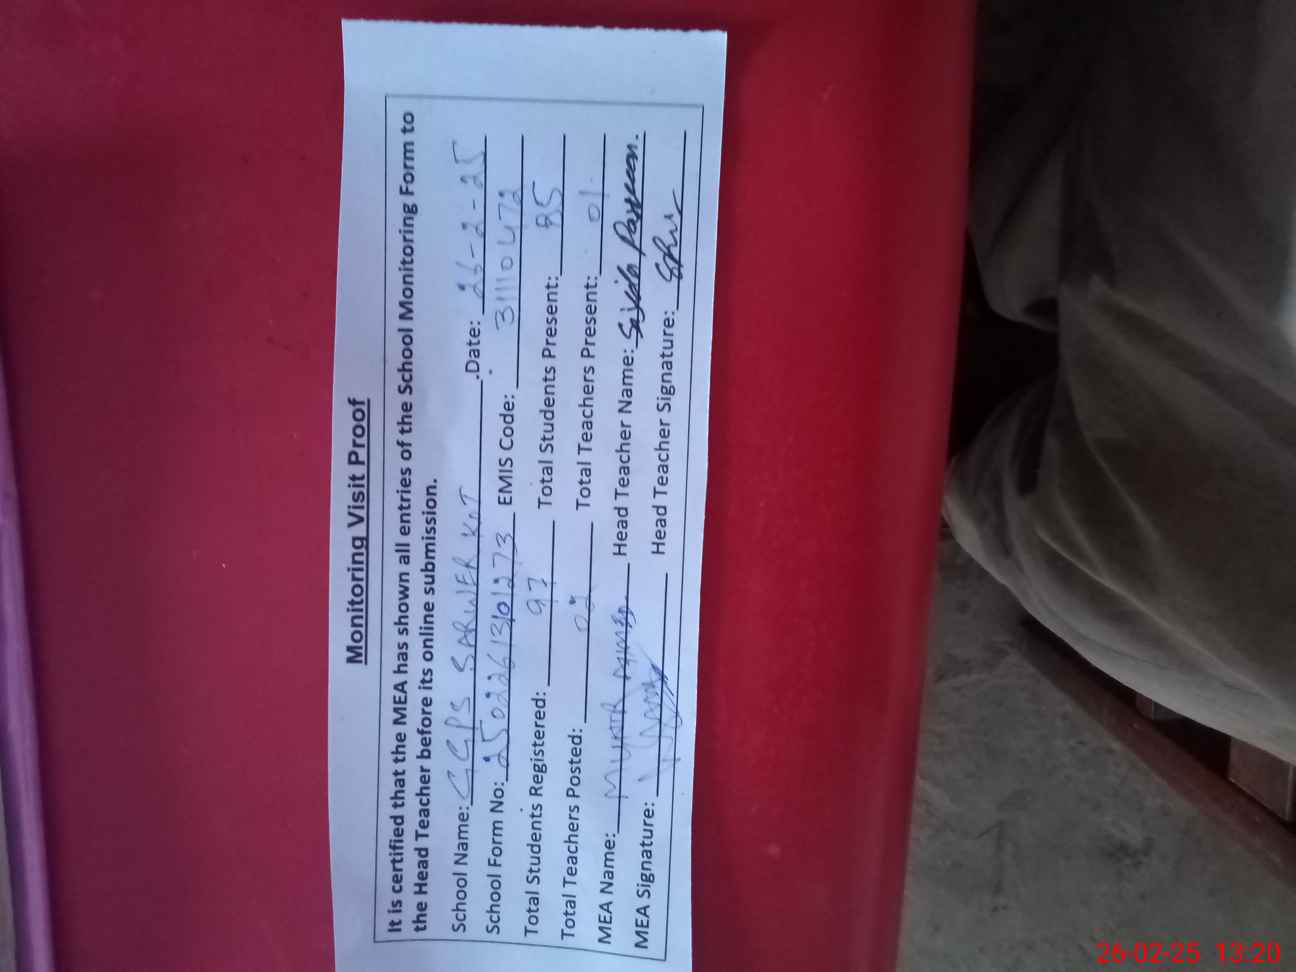 Monitoring Visit Proof
It is certified that the MEA has shown all entries of the School Monitoring Form to
the Head Teacher before its online submission.
School Name: GGPS SARWER KOT .Date: 26-2-25
School Form No: 25022613101273 EMIS Code: 31110472
Total Students Registered: 97 Total Students Present: 85
Total Teachers Posted: 02 Total Teachers Present: 01
MEA Name: Head Teacher Name: Sajida Parveen.
MEA Signature: Head Teacher Signature:
26-02-25 13:20